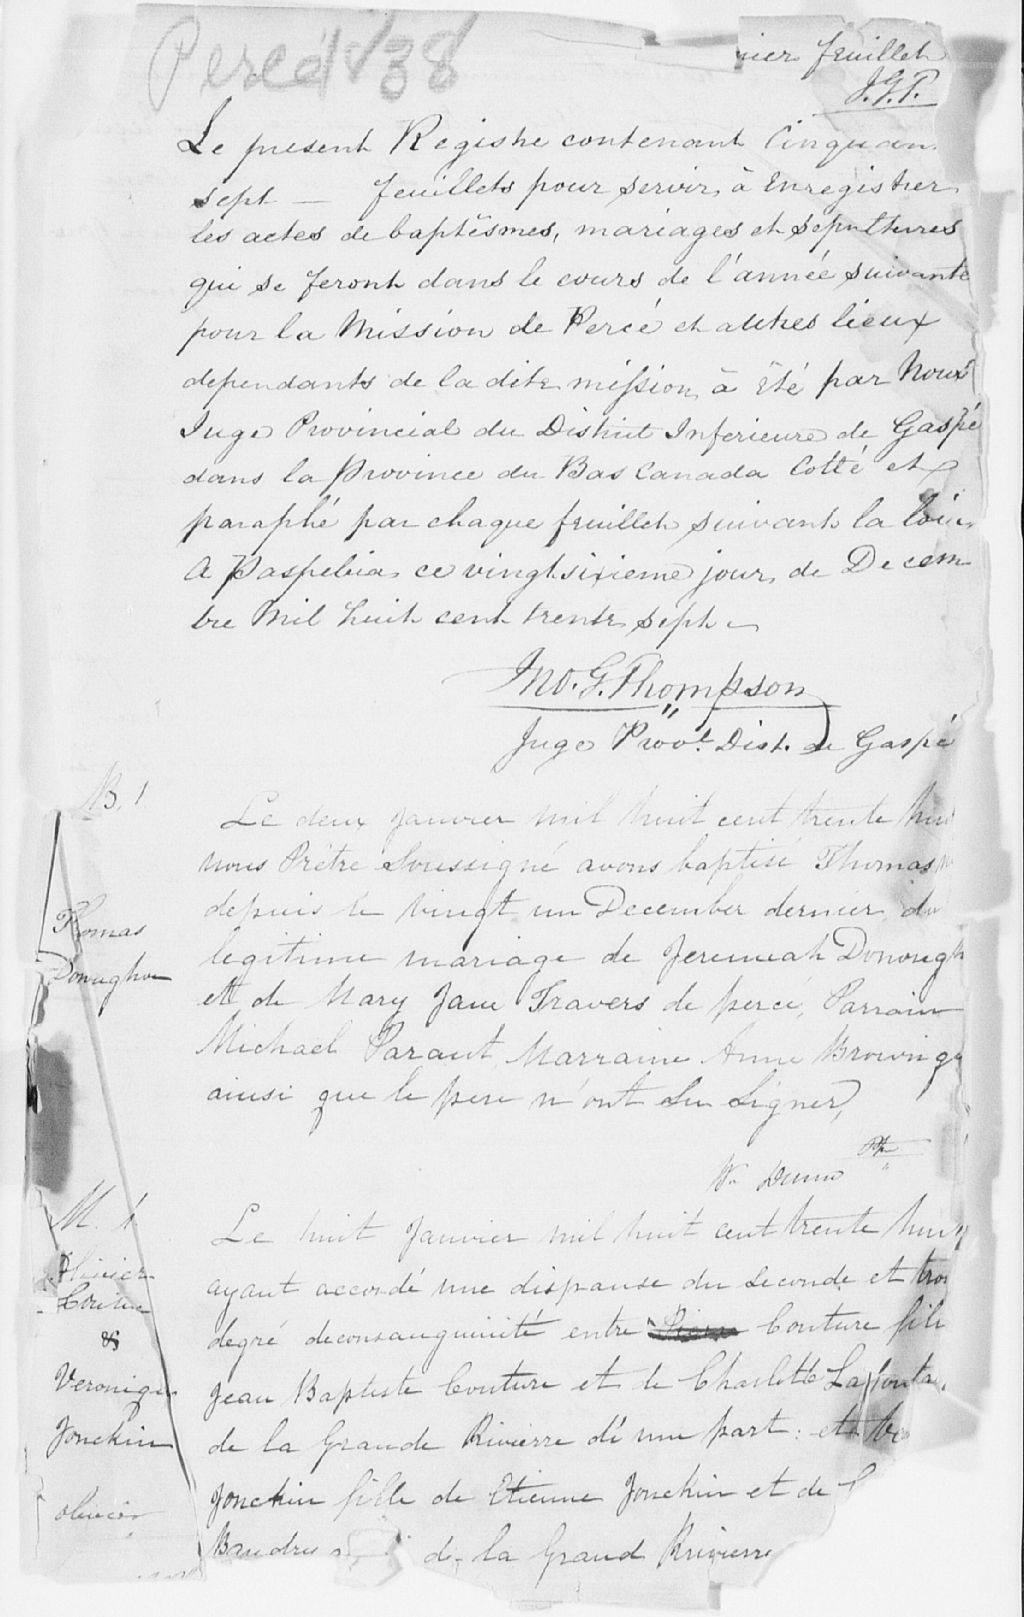 Percé 1838
nier feuillet
J.G.T.
Le present Registre contenant Cinquan
sept — feuillets pour servir à Enregistrer
les actes de baptêsmes, mariages et sepultures
qui se feront dans le cours de l'année suivante
pour la Mission de Percé et autres lieux
dependants de la dite mission, à Eté par Nous
Juge Provincial du District Inferieure de Gaspé
dans la Province du Bas Canada Cotté et
paraphé par chaque feuillet suivant la loi
A Paspebia ce vingt sixieme jour de Decem
bre Mil huit cent trente sept
Jno. G. Thompson
Juge Provl. Dist. de Gaspé
B. 1
Le deux Janvier mil huit cent trente hui
nous Prêtre Soussigné avons baptisé Thomas
depuis le vingt un December dernier du
legitime mariage de Jeremeah Donough
et de Mary Jane Travers de percé, Parrain
Michael Paraut, Marraine Anne Brown q
ainsi que le pere n'ont Su Signer,
Wm Dunn Ptr
Thomas
Donughou
M. 1
Le huit Janvier mil huit cent trente huit
ayant accordé une dispanse du seconde et troi
degré deconsanguinité entre Couture fils
Jean Baptiste Couture et de Charlotte Lafonta
de la Grande Rivierre d'une part: et Ve
Jonekin fille de Etienne Jonekin et de
Baudre de la Grand Rivierre
Olivier
Couture
&
Veronique
Jonekin
olivier